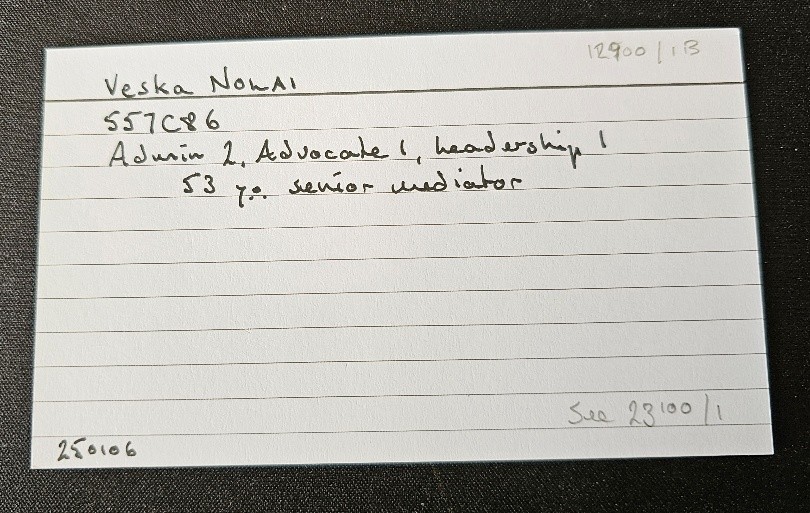 12900/1B
Veska NOWAI
557C86
Admin 2, Advocate 1, Leadership 1
53 y.o. senior mediator
See 23100/1
250106